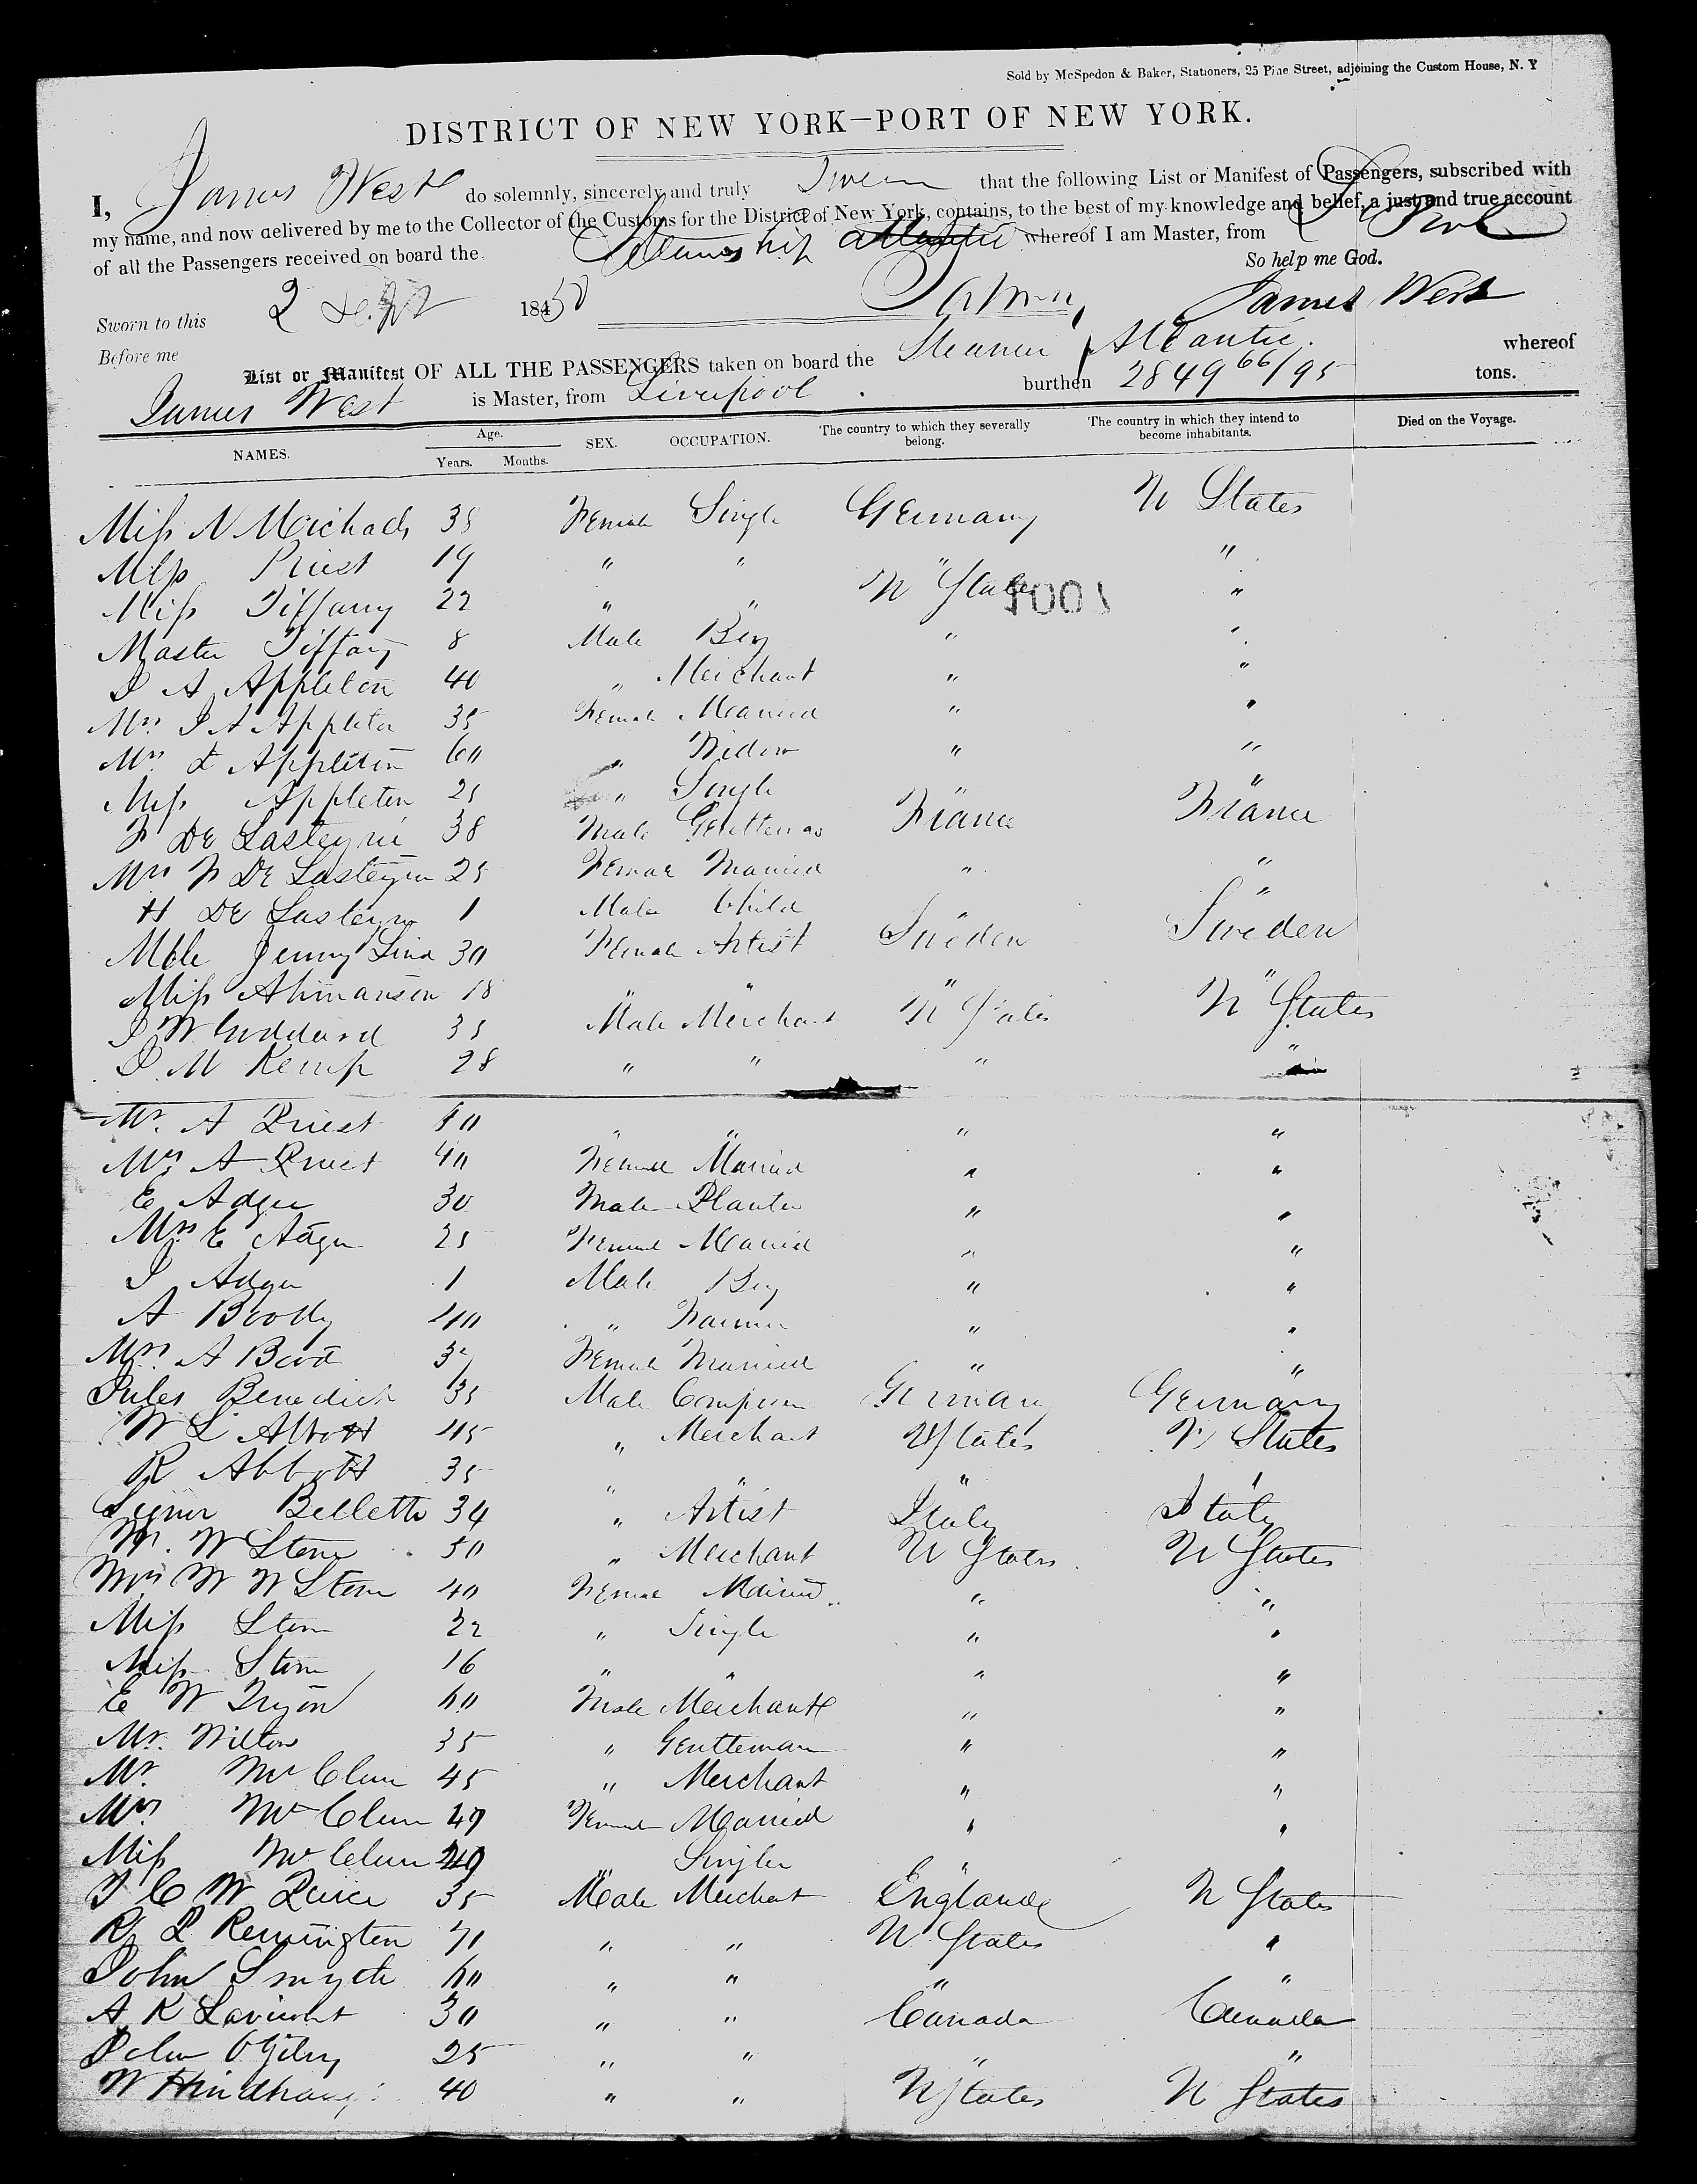 Sold by McSpedon & Baker, Stationers, 25 Pine Street, adjoining the Custom House, N. Y
DISTRICT OF NEW YORK—PORT OF NEW YORK.
I, James West do solemnly, sincerely and truly Swear that the following List or Manifest of Passengers, subscribed with
my name, and now delivered by me to the Collector of the Customs for the District of New York, contains, to the best of my knowledge and belief, a just and true account
of all the Passengers received on board the Steamship Atlantic whereof I am Master, from L Pool
So help me God.
Sworn to this 2 Sept 1850 James West
Before me
List or Manifest OF ALL THE PASSENGERS taken on board the Steamer Atlantic. whereof
James West is Master, from Liverpool . burthen 2849 66/95 tons.
NAMES. Age. Years. Months. SEX. OCCUPATION. The country to which they severally belong. The country in which they intend to become inhabitants. Died on the Voyage.
Miss N Meichaels 35 Female Single Germany U States
Miss Priest 19 " " " "
Miss Tiffany 22 " " U States "
Master Tiffany 8 Male Boy " "
D A Appleton 40 " Merchant " "
Mrs D A Appleton 35 Female Married " "
Mrs L Appleton 60 " Widow " "
Miss Appleton 25 " Single " "
F De Lasteyrie 38 Male Gentleman France France
Mrs F De Lasteyrie 25 Female Married " "
H De Lasteyrie 1 Male Child " "
Mdle Jenny Lind 30 Female Artist Sweden Sweden
Miss Ahmansen 18 " " " "
J W Goddard 35 Male Merchant U States U States
J M Kemp 28 " " " "
Mr. A Priest 40 " " " "
Mrs A Priest 40 Female Married " "
E Adger 30 Male Planter " "
Mrs E Adger 25 Female Married " "
J Adger 1 Male Boy " "
A Boody 40 " Farmer " "
Mrs A Bood Female Married " "
Jules Benedict 35 Male Composer Germany Germany
W L Abbott 45 " Merchant U States U States
R Abbott 35 " " " "
Signor Belletti 34 " Artist Italy Italy
W. W Stone 50 " Merchant U States U States
Mrs W W Stone 40 Female Married " "
Miss Stone 22 " Single " "
Miss Stone 16 " " " "
E W Tryon 60 Male Merchant " "
Mr. Wilton 35 " Gentleman " "
Mr. McClure 45 " Merchant " "
Mrs McClure 40 Female Married " "
Miss McClure 20 " Single "
J C W 35 Male Merchant England U States
R P Remington " " U States "
John Smyth 60 " " " "
A K 30 " " Canada Canada
John Ogilvy 25 " " " "
W 40 " " U States U States